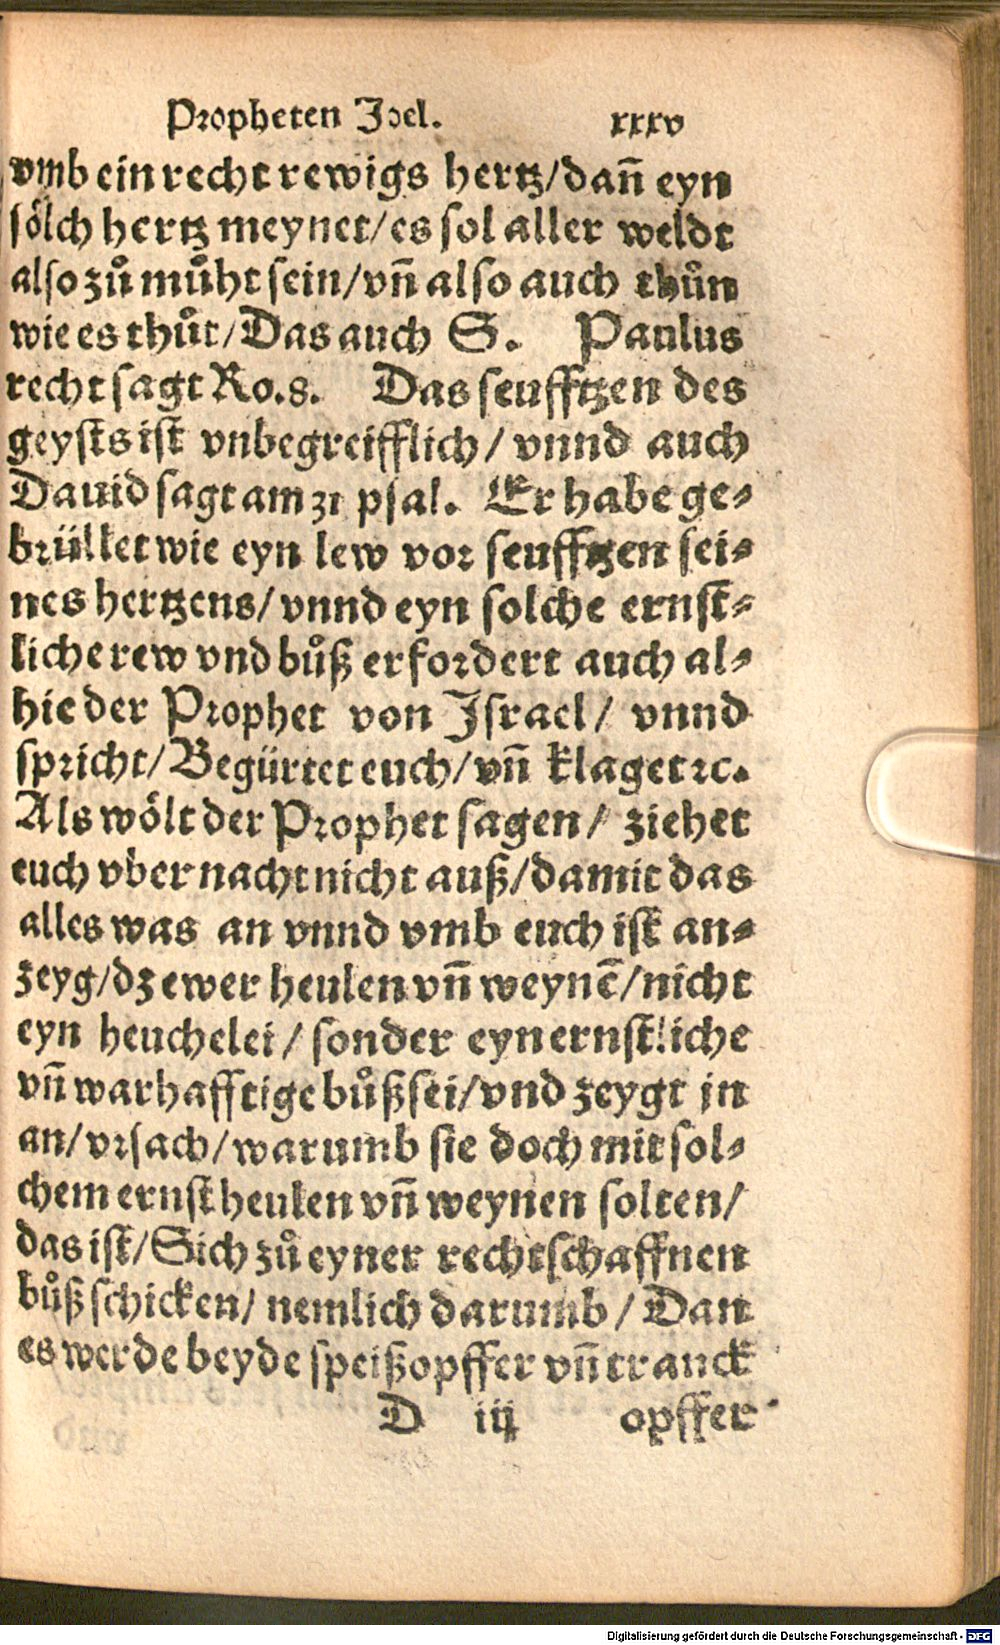 Propheten Joel. xxxv
vmb ein recht rewigs hertz/dañ eyn
sölch hertz meynet/es sol aller weldt
also zů můht sein/vñ also auch thůn
wie es thůt/Das auch S. Paulus
recht sagt Ro.8. Das seufftzen des
geysts ist vnbegreifflich/ vnnd auch
Dauid sagt am 31 psal. Er habe ge⸗
brüllet wie eyn lew vor seufftzen sei⸗
nes hertzens/vnnd eyn solche ernst⸗
liche rew vnd bůß erfordert auch al⸗
hie der Prophet von Israel/ vnnd
spricht/Begürtet euch/vñ klaget ꝛc.
Als wölt der Prophet sagen/ ziehet
euch vber nacht nicht auß/damit das
alles was an vnnd vmb euch ist an⸗
zeyg/dz ewer heulen vñ weynē/nicht
eyn heuchelei/ sonder eyn ernstliche
vñ warhafftige bůß sei/vnd zeygt jn
an/vrsach/warumb sie doch mit sol⸗
chem ernst heulen vñ weynen solten/
das ist/Sich zů eyner rechtschaffnen
bůß schicken/ nemlich darumb/ Dan
es werde beyde speißopffer vñ tranck
D iij opffer
Digitalisierung gefördert durch die Deutsche Forschungsgemeinschaft - DFG